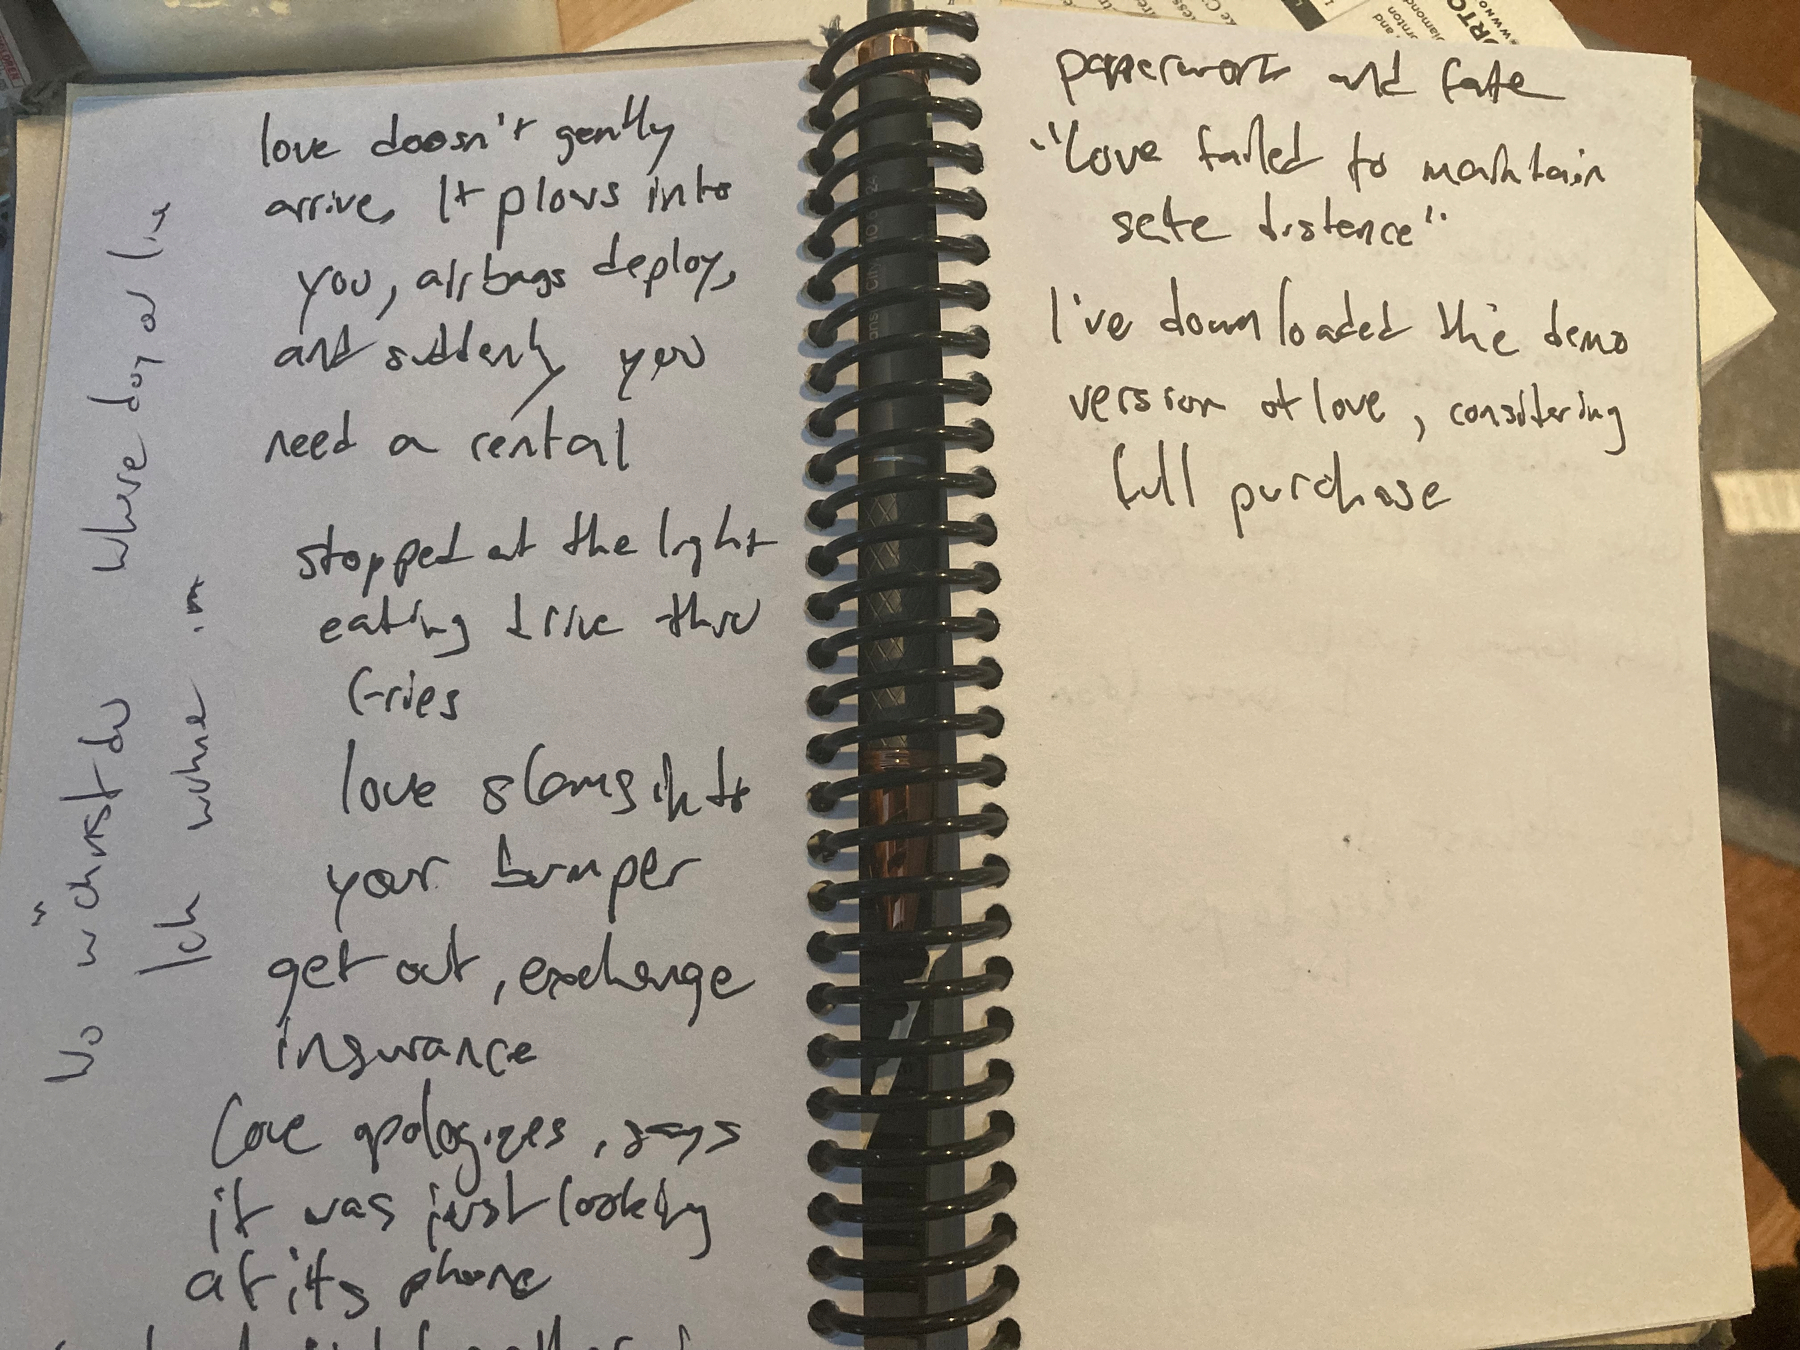 love doesn't gently
arrive, It plows into
you, airbags deploy,
and suddenly you
need a rental
stopped at the light
eating drive thru
fries
love slams into
your bumper
get out, exchange
insurance
Love apologizes, says
it was just looking
at its phone
Wo wohnst du
Where do you live
Ich wohne in
paperwork and fate
"Love failed to maintain
safe distence"
I've downloaded the demo
version of love, considering
full purchase